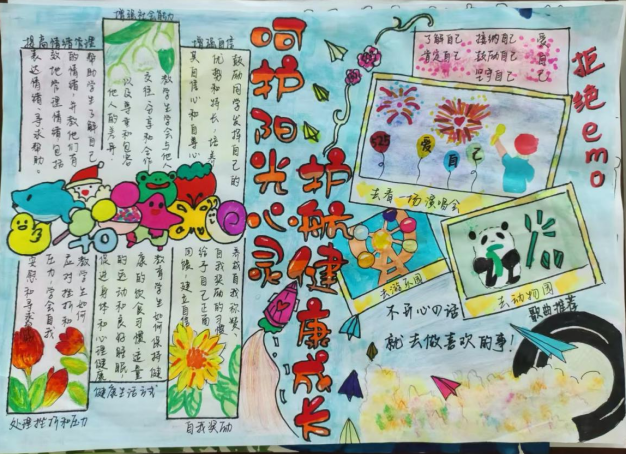 呵护阳光心灵
护航健康成长
提高情绪管理
帮助学生了解自己
的情绪，并教他们有
效地管理情绪包括
表达情绪、寻求帮助。
增强社会能力
教学生学会与他人
交往、分享和合作
以及尊重和包容
他人的差异
增强自信
鼓励同学发挥自己的
优势和特长，培养
其自信心和自尊心
处理挫折和压力
教学生如何
应对挫折和
压力，学会自我
健康生活方式
教育学生如何保持健
康的饮食习惯，适量
的运动和良好睡眠，
促进身体和心理健康
自我奖励
养成自我称赞、
自我奖励的习惯
给予自己正面
回馈，建立自信
了解自己 接纳自己 爱自己
肯定自己 鼓励自己
坚守自己
拒绝emo
525 爱自己
去看一场演唱会
去游乐园
去动物园
不开心的话
就去做喜欢的事！
歌曲推荐